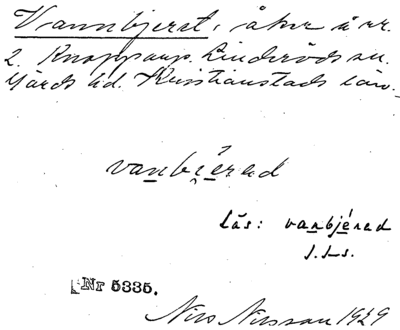 Vannbjerst, åker å nr.
2. Knopparp. Linderöds sn.
Gärds hd. Kristianstads län.
vanbjérad
Läs: vanbjérad
J.L-s.
Nr 5335.
Nils Nilsson 1929